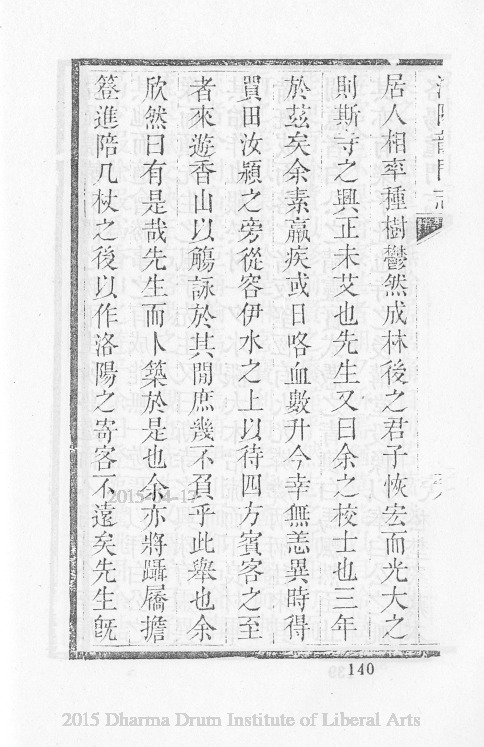 洛陽龍門志
居人相率種樹鬱然成林後之君子恢宏而光大之
則斯寺之興正未艾也先生又曰余之校士也三年
於茲矣余素羸疾或日咯血數升今幸無恙異時得
買田汝潁之旁從容伊水之上以待四方賓客之至
者來遊香山以觴詠於其閒庶幾不負乎此舉也余
欣然曰有是哉先生而卜築於是也余亦將躡屩擔
簦進陪几杖之後以作洛陽之寄客不遠矣先生旣
2015-04-17
140
2015 Dharma Drum Institute of Liberal Arts